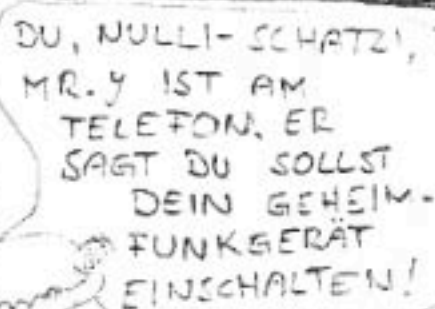 DU, NULLI-SCHATZI,
MR. Y IST AM
TELEFON. ER
SAGT DU SOLLST
DEIN GEHEIM-
FUNKGERÄT
EINSCHALTEN!